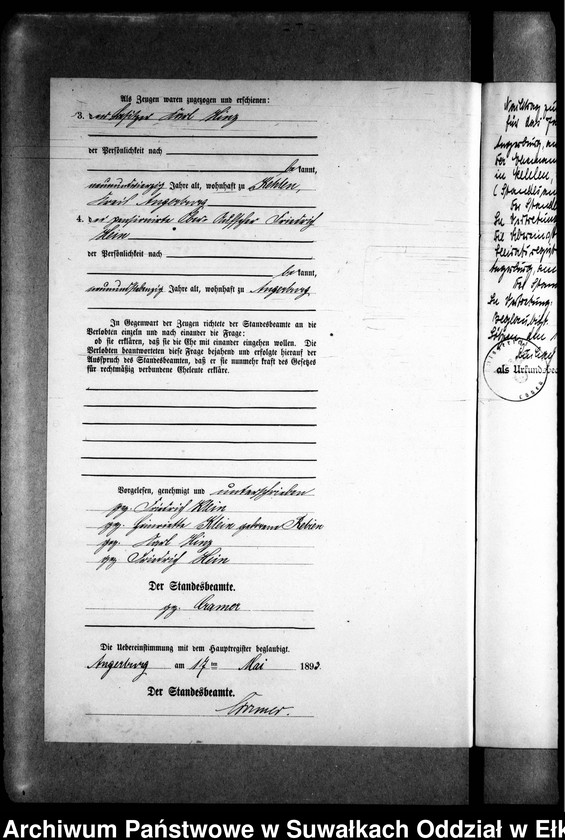 Als Zeugen waren zugezogen und erschienen:
3. der Besitzer Karl Hinz
der Persönlichkeit nach
be kannt,
neunundvierzig Jahre alt, wohnhaft zu Kehlen,
Kreis Angerburg
4. der pensionirte Ober Friedrich
Hein
der Persönlichkeit nach
be kannt,
neunundsiebenzig Jahre alt, wohnhaft zu Angerburg
In Gegenwart der Zeugen richtete der Standesbeamte an die
Verlobten einzeln und nach einander die Frage:
ob sie erklären, daß sie die Ehe mit einander eingehen wollen. Die
Verlobten beantworteten diese Frage bejahend und erfolgte hierauf der
Ausspruch des Standesbeamten, daß er sie nunmehr kraft des Gesetzes
für rechtmäßig verbundene Eheleute erkläre.
Vorgelesen, genehmigt und unterschrieben
gez. Friedrich Klein
gez. Henriette Klein geborene
gez. Karl Hinz
gez. Friedrich Hein
Der Standesbeamte.
gez. Cramer
Die Uebereinstimmung mit dem Hauptregister beglaubigt.
Angerburg am 17 ten Mai 1893.
Der Standesbeamte.
Cramer.
für das
Angerburg,
in Kehlen,
Angerburg, am
als Urkundsbe
Archiwum Państwowe w Suwałkach Oddział w Ełk